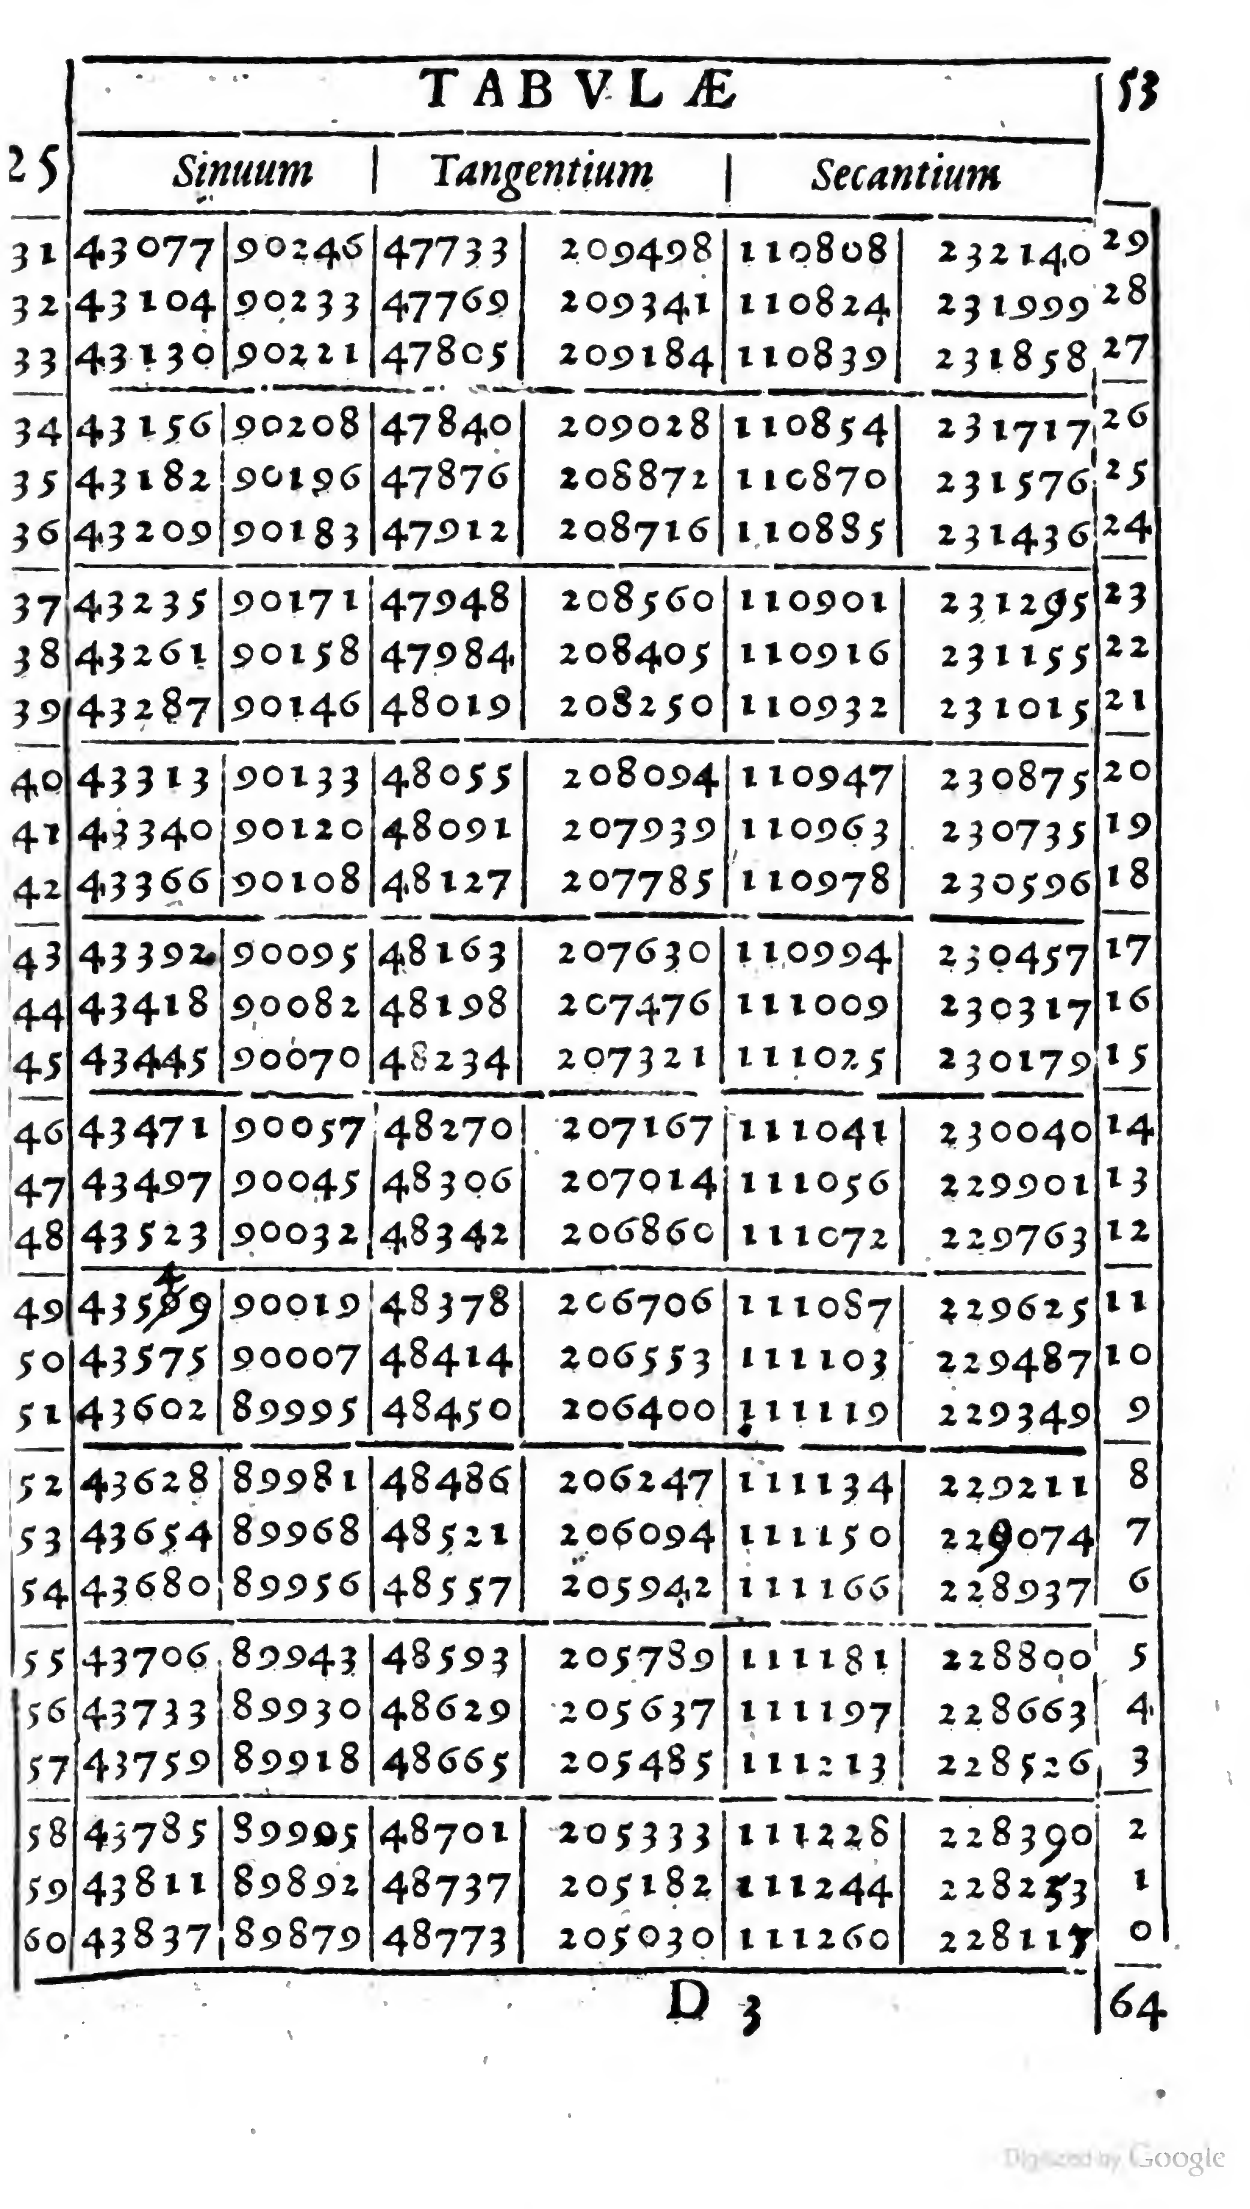 TABVLÆ 53
25 Sinuum Tangentium Secantium
31 43077 90246 47733 209498 110808 232140 29
32 43104 90233 47769 209341 110824 231999 28
33 43130 90221 47805 209184 110839 231858 27
34 43156 90208 47840 209028 110854 231717 26
35 43182 90196 47876 208872 110870 231576 25
36 43209 90183 47912 208716 110885 231436 24
37 43235 90171 47948 208560 110901 231295 23
38 43261 90158 47984 208405 110916 231155 22
39 43287 90146 48019 208250 110932 231015 21
40 43313 90133 48055 208094 110947 230875 20
41 43340 90120 48091 207939 110963 230735 19
42 43366 90108 48127 207785 110978 230596 18
43 43392 90095 48163 207630 110994 230457 17
44 43418 90082 48198 207476 111009 230317 16
45 43445 90070 48234 207321 111025 230179 15
46 43471 90057 48270 207167 111041 230040 14
47 43497 90045 48306 207014 111056 229901 13
48 43523 90032 48342 206860 111072 229763 12
4
49 43589 90019 48378 206706 111087 229625 11
50 43575 90007 48414 206553 111103 229487 10
51 43602 89995 48450 206400 111119 229349 9
52 43628 89981 48486 206247 111134 229211 8
53 43654 89968 48521 206094 111150 229074 7
54 43680 89956 48557 205942 111166 228937 6
55 43706 89943 48593 205789 111181 228800 5
56 43733 89930 48629 205637 111197 228663 4
57 43759 89918 48665 205485 111213 228526 3
58 43785 89905 48701 205333 111228 228390 2
59 43811 89892 48737 205182 111244 228253 1
60 43837 89879 48773 205030 111260 228117 0
D 3 64
Digitized by Google